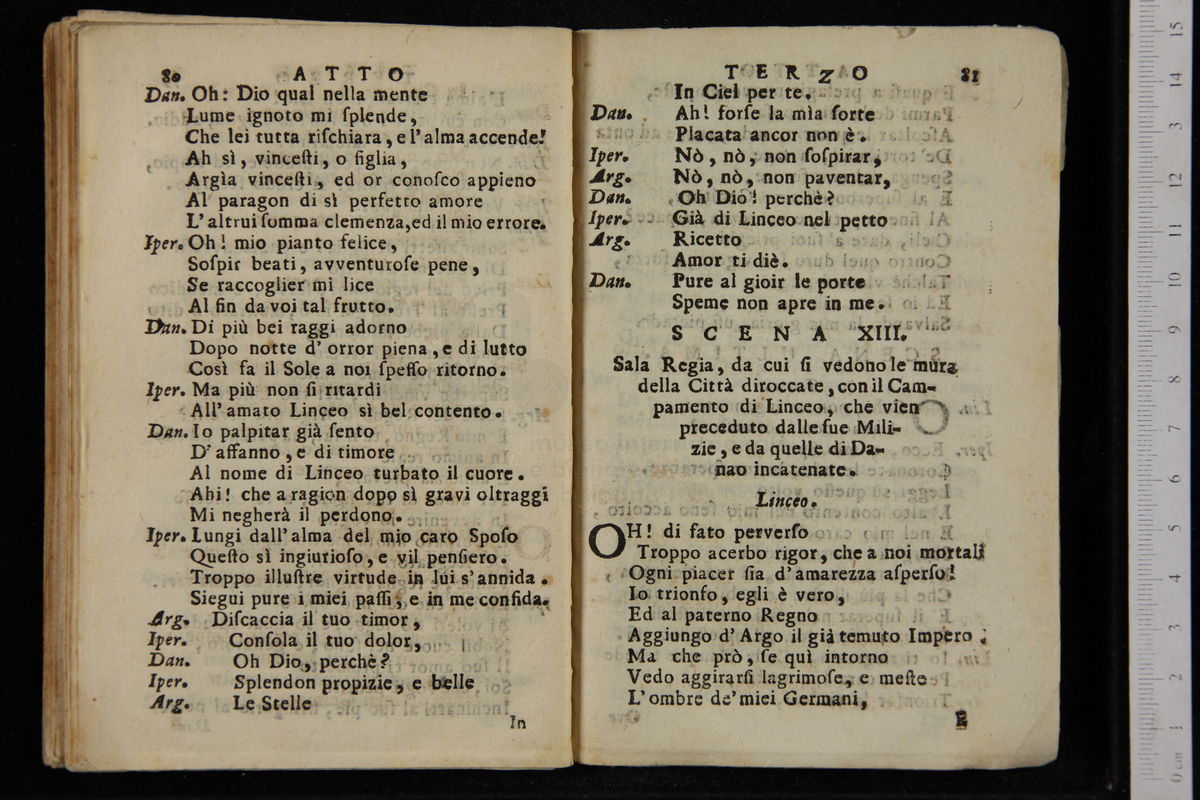 80 ATTO
Dan. Oh: Dio qual nella mente
Lume ignoto mi ſplende,
Che lei tutta riſchiara, e l'alma accende!
Ah sì, vinceſti, o figlia,
Argìa vinceſti, ed or conoſco appieno
Al paragon di sì perfetto amore
L'altrui ſomma clemenza, ed il mio errore.
Iper. Oh! mio pianto felice,
Soſpir beati, avventuroſe pene,
Se raccoglier mi lice
Al fin da voi tal frutto.
Dan. Di più bei raggi adorno
Dopo notte d'orror piena, e di lutto
Così fa il Sole a noi ſpeſſo ritorno.
Iper. Ma più non ſi ritardi
All'amato Linceo sì bel contento.
Dan. Io palpitar già ſento
D'affanno, e di timore
Al nome di Linceo turbato il cuore.
Ahi! che a ragion dopo sì gravi oltraggi
Mi negherà il perdono.
Iper. Lungi dall'alma del mio caro Spoſo
Queſto sì ingiurioſo, e vil penſiero.
Troppo illuſtre virtude in lui s'annida.
Siegui pure i miei paſſi, e in me confida.
Arg. Diſcaccia il tuo timor,
Iper. Conſola il tuo dolor,
Dan. Oh Dio, perchè?
Iper. Splendon propizie, e belle
Arg. Le Stelle
In
TERZO 81
In Ciel per te.
Dan. Ah! forſe la mìa ſorte
Placata ancor non è.
Iper. Nò, nò, non ſoſpirar,
Arg. Nò, nò, non paventar,
Dan. Oh Dio! perchè?
Iper. Già di Linceo nel petto
Arg. Ricetto
Amor ti diè.
Dan. Pure al gioir le porte
Speme non apre in me.
SCENA XIII.
Sala Regia, da cui ſi vedono le mura
della Città diroccate, con il Cam-
pamento di Linceo, che vien
preceduto dalle ſue Mili-
zie, e da quelle di Da-
nao incatenate.
Linceo.
OH! di fato perverſo
Troppo acerbo rigor, che a noi mortali
Ogni piacer ſia d'amarezza aſperſo!
Io trionfo, egli è vero,
Ed al paterno Regno
Aggiungo d'Argo il già temuto Impero;
Ma che prò, ſe quì intorno
Vedo aggirarſi lagrimoſe, e meſte
L'ombre de'miei Germani,
E